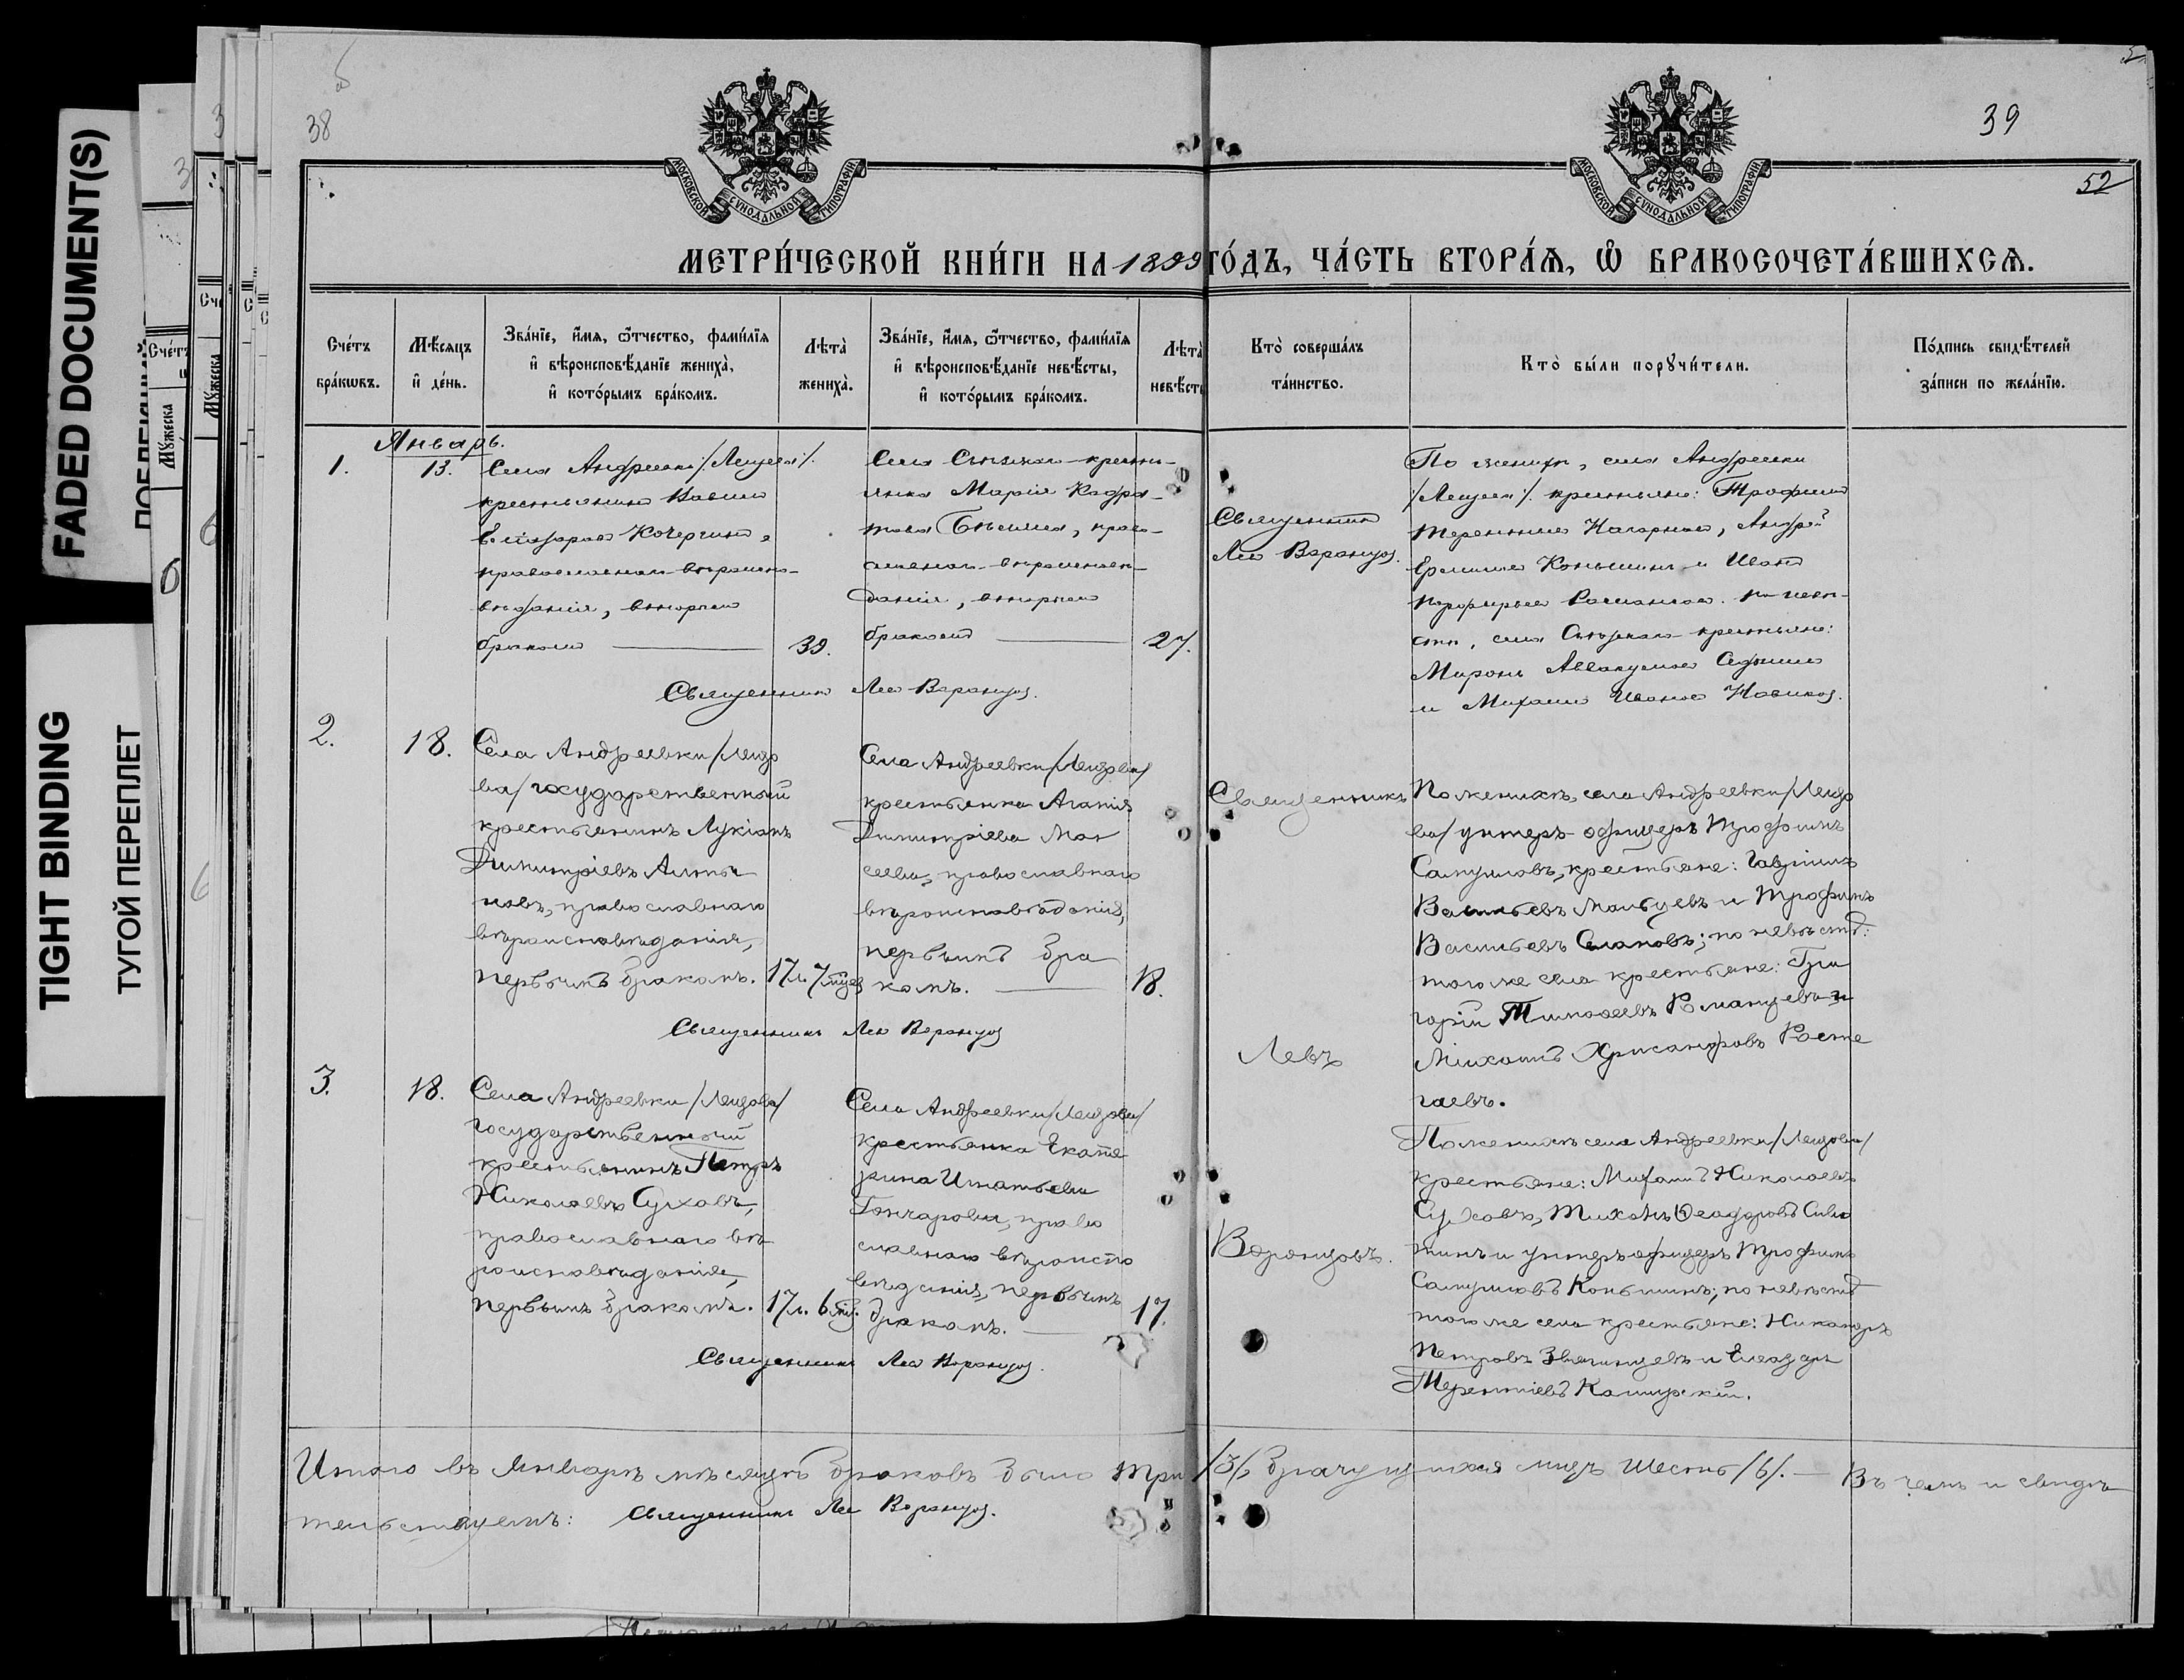 FADED DOCUMENT(S)
TIGHT BINDING
ТУГОЙ ПЕРЕПЛЕТ
38
39
52
МОСКОВСКОЙ СѴНОДАЛЬНОЙ ТИПОГРАФІИ
МОСКОВСКОЙ СѴНОДАЛЬНОЙ ТИПОГРАФІИ
МЕТРИ́ЧЕСКОЙ КНИ́ГИ НА 1899 ГО́ДЪ, ЧА́СТЬ ВТОРА́Ѧ, Ѽ БРАКОСОЧЕТА́ВШИХСѦ.
Сче́тъ
бра́кѡвъ.
Мѣ́сяцъ
и҆ де́нь.
Зва́нїе, и҆́мѧ, ѻ҆́тчество, фами́лїѧ
и҆ вѣроисповѣ́данїе жениха̀,
и҆ кото́рымъ бра́комъ.
Лѣта̀
жениха̀.
Зва́нїе, и҆́мѧ, ѻ҆́тчество, фами́лїѧ
и҆ вѣроисповѣ́данїе невѣ́сты,
и҆ кото́рымъ бра́комъ.
Лѣта̀
невѣ́сты
Кто̀ соверша́лъ
та́инство.
Кто̀ бы́ли порꙋчи́тели.
По́дпись свидѣ́телей
за́писи по жела́нїю.
Январь.
1.
13.
Села Андреевки
крестьянинъ
Кочергинъ,
православнаго вѣроиспо-
вѣданія, вторымъ
бракомъ
39.
Села крестья-
нка Марія
право-
славнаго вѣроисповѣ-
данія, вторымъ
бракомъ
27.
Священникъ
Левъ Воронцовъ.
По женихѣ, села Андреевки
крестьяне: Трофимъ
Терентьевъ Нагорный, Андрей
Коньшинъ и Иванъ
Порфирьевъ по невѣ-
стѣ, села крестьяне:
Миронъ Аввакумовъ
и Михаилъ Ивановъ Новиковъ.
Священникъ Левъ Воронцовъ.
2.
18.
Села Андреевки /Лещо
ва/ государственный
крестьянинъ Лукіанъ
Димитріевъ
новъ, православнаго
вѣроисповѣданія,
первымъ бракомъ.
17 л. 7 мцев
Села Андреевки /Лещова/
крестьянка Агапія
Димитріева Мат
сеева, православнаго
вѣроисповѣданія,
первымъ бра
комъ.
18.
Священникъ
Левъ
Воронцовъ.
По женихѣ, села Андреевки /Лещо
ва/ унтеръ-офицеръ Трофимъ
Самуиловъ, крестьяне: Гавріилъ
Васильевъ Мальцевъ и Трофимъ
Васильевъ; по невѣстѣ:
того же села крестьяне: Гри
горій Тимоѳеевъ Романцевъ и
Михаилъ Хрисанфовъ Расте
гаевъ.
Священникъ Левъ Воронцовъ
3.
18.
Села Андреевки /Лещова/
государственный
крестьянинъ Петръ
Николаевъ Суховъ,
православнаго вѣ
роисповѣданія,
первымъ бракомъ.
17 л. 6 мц.
Села Андреевки /Лещова/
крестьянка Екате
рина Игнатьева
Гончарова, право
славнаго вѣроиспо
вѣданія, первымъ
бракомъ.
17.
По женихѣ села Андреевки /Лещова/
крестьяне: Михаилъ Николаевъ
Суховъ, Тихонъ Ѳеодоровъ
тинъ и унтеръ офицеръ Трофимъ
Самуиловъ Коньшинъ; по невѣстѣ
того же села крестьяне: Никаноръ
Петровъ Звягинцевъ и Елеазаръ
Терентіевъ Каширскій.
Священникъ Левъ Воронцовъ.
Итого въ Январѣ мѣсяцѣ браковъ было три /3/, брачущихся лицъ шесть /6/. — Въ чемъ и свидѣ
тельствуемъ: Священникъ Левъ Воронцовъ.